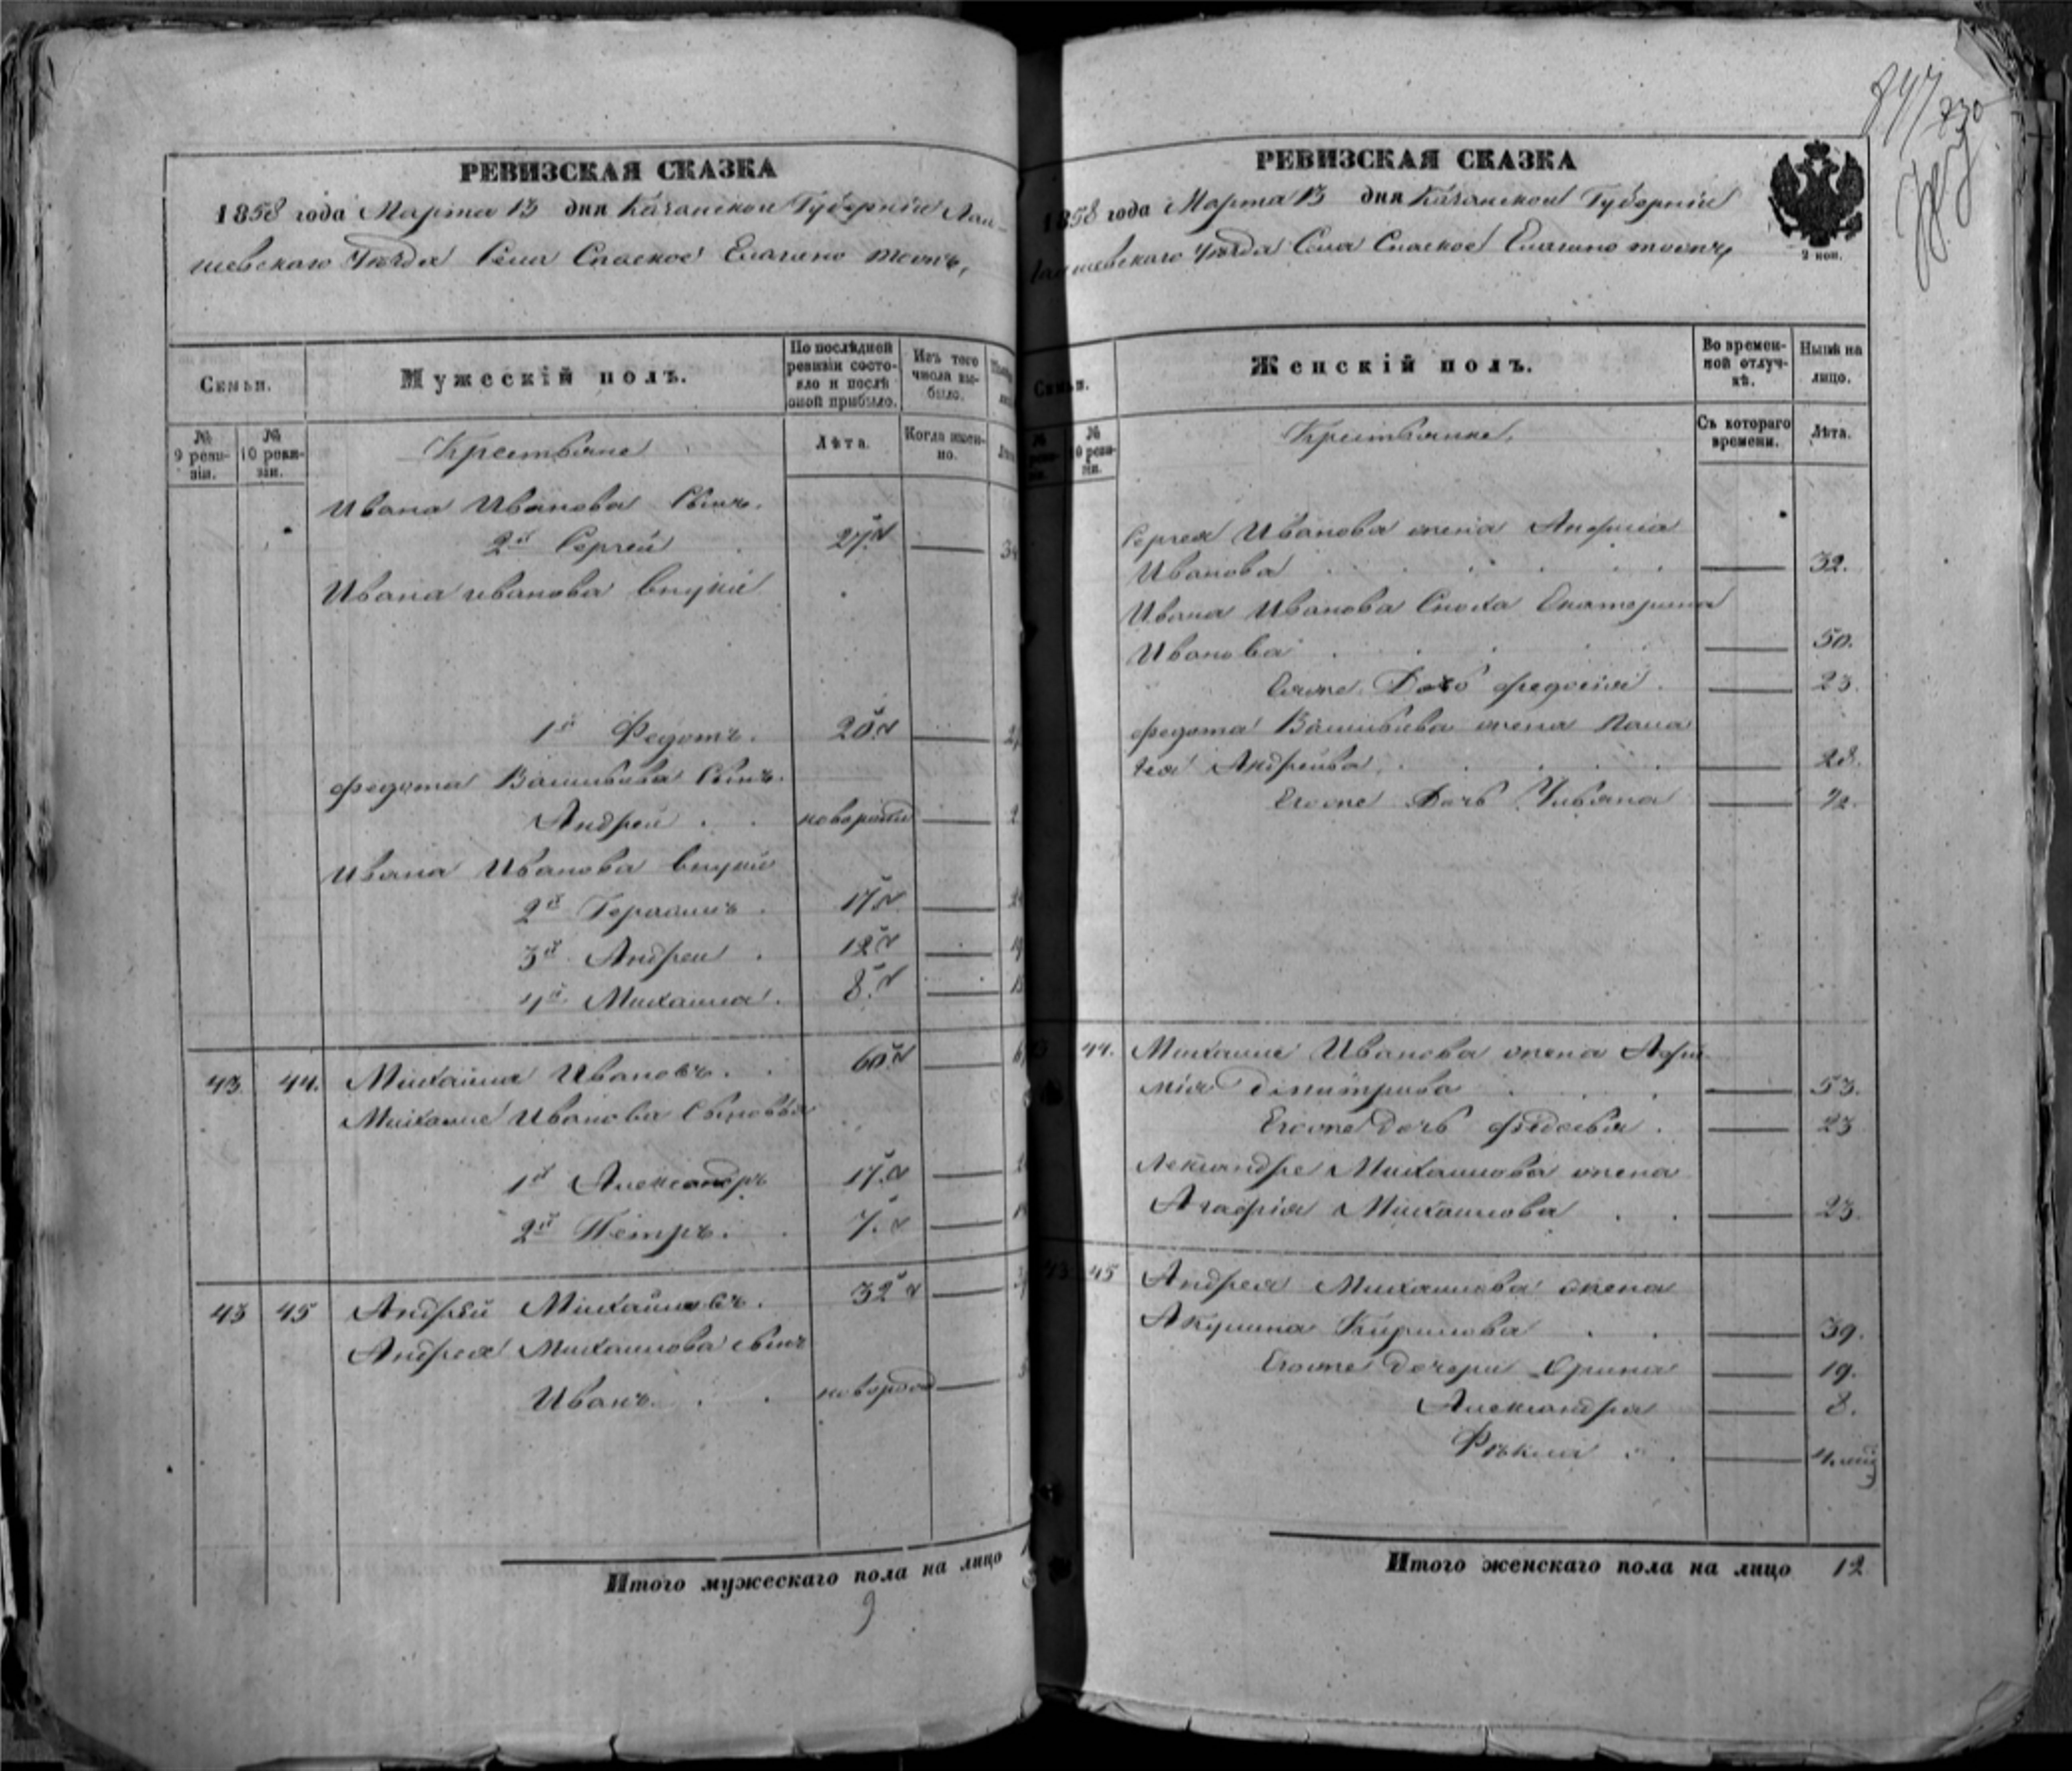 РЕВИЗСКАЯ СКАЗКА
1858 года Марта 13 дня Казанской Губерніи Лаи-
шевскаго Уѣзда Села Спаское Елагино тожъ,
Семьи.
Мужескій полъ.
По послѣдней ревизіи состо-
яло и послѣ оной прибыло.
Изъ того числа вы-
было.
№ 9 реви-
зіи.
№ 10 реви-
зіи.
Крестьяне
Лѣта.
Когда имен-
но.
Ивана Иванова Сынъ.
2й Сергей 27.
Ивана иванова внуки
1й Федотъ. 20.
Федота Васильева Сынъ.
Андрей
Ивана Иванова внуки
2й Герасимъ 17
3й Андрей 12
4й Михаила 8.
43 44. Михаила Ивановъ. 60
Михаилы Иванова Сыновья
1й Александръ 17.
2й Петръ. 7.
43 45 Андрей Михайловъ. 32
Андрея Михайлова сынъ
Иванъ
Итого мужескаго пола на лицо
9
РЕВИЗСКАЯ СКАЗКА
1858 года Марта 13 дня Казанской Губерніи
Лаишевскаго Уѣзда Села Спаское Елагино тожъ,
2 коп.
847
830
Семьи.
Женскій полъ.
Во времен-
ной отлуч-
кѣ.
Нынѣ на
лицо.
№ 10 реви-
зіи.
Крестьянки.
Съ котораго
времени.
Лѣта.
Сергея Иванова жена
Иванова 32.
Ивана Иванова Сноха Екатерина
Иванова 50.
Дочь Федосія 23.
Федота Васильева жена Пела
гея Андреева 28.
Дочь
44. Михаилы Иванова жена
Дмитрева 53.
Дочь 23
Александры Михайлова жена
Агафія Михайлова 23.
45 Андрея Михайлова жена
Акулина Кирилова 39.
дочери Орина 19.
Александра 8.
Фекла
Итого женскаго пола на лицо 12